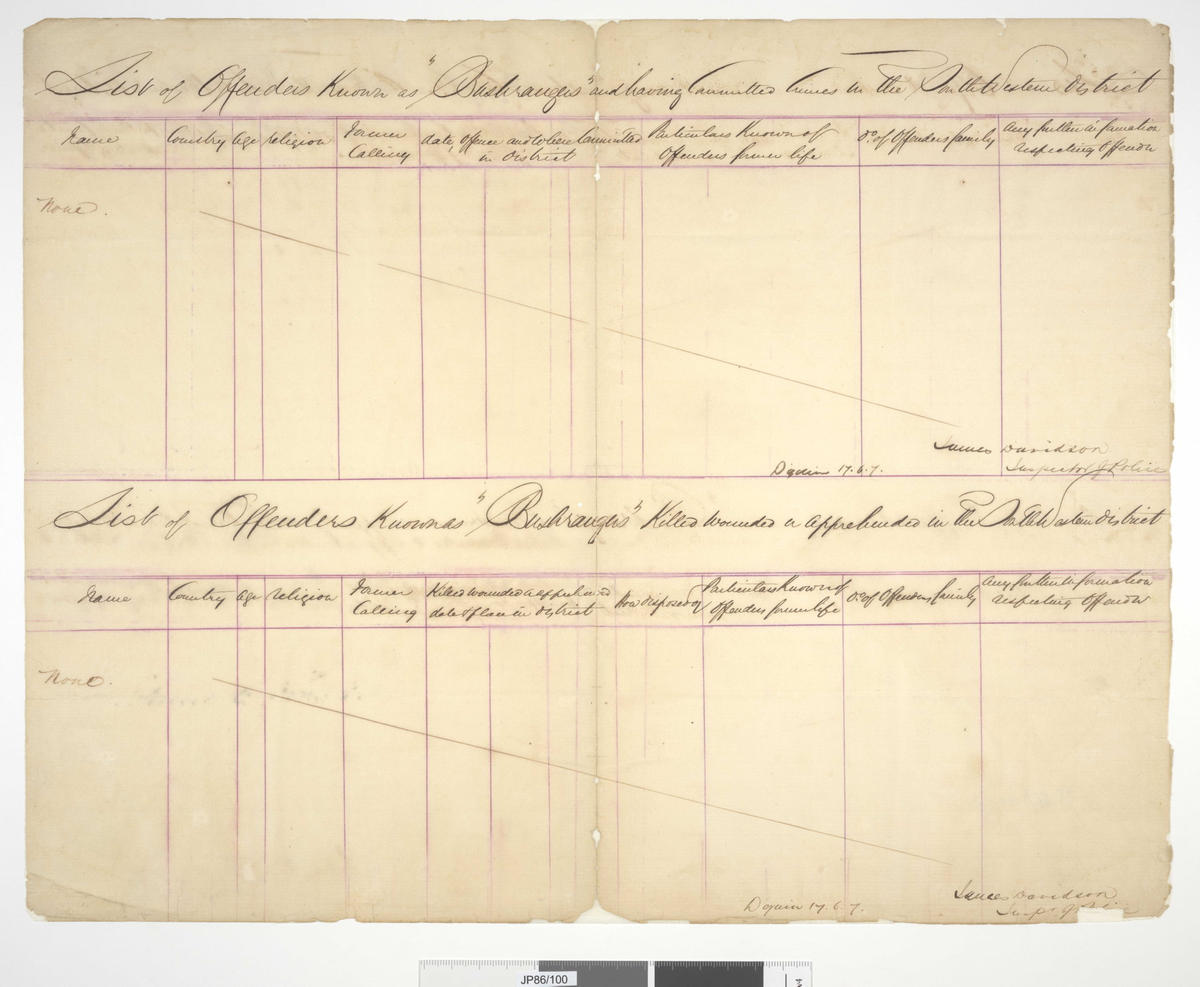 List of Offenders Known as "Bushrangers" and having Committed Crimes in the South Western District
Name
Country
age
religion
Former
Calling
date, offence and where Committed
in District
Particulars Known of
Offenders former life
Do. of Offenders family
Any further information
respecting Offender
None.
James Davidson
Inspector of Police
17.6.7.
List of Offenders Known as "Bushrangers" Killed wounded or apprehended in the South Western District
Name
Country
age
religion
Former
Calling
Killed wounded or apprehended
date & place in District
How disposed of
Particulars Known of
Offenders former life
Do. of Offenders family
Any further information
respecting Offender
None.
James Davidson
17.6.7.
JP86/100